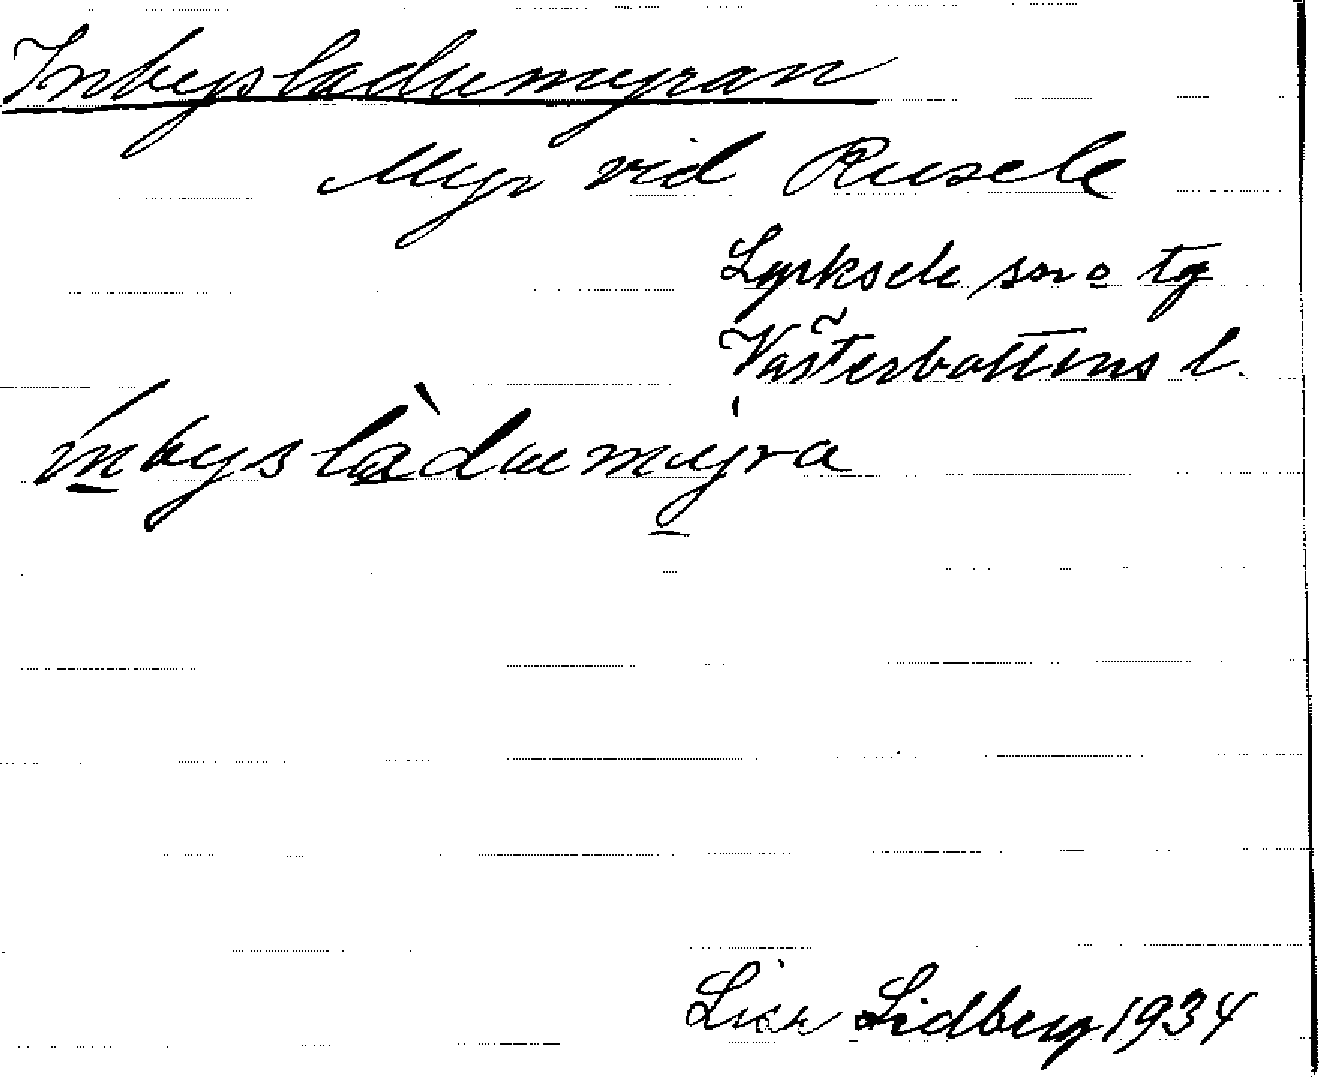 Inbysladumyran
Myr vid Rusele
Lycksele sn o tg
Västerbottens l.
ìnbyslàdumyra
Lisa Lidberg 1934